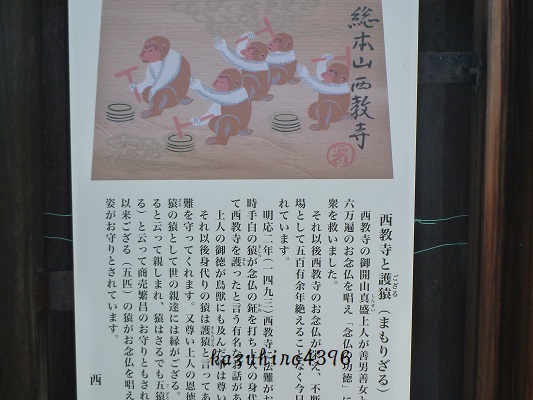 総本山西教寺
西教寺と護猿（まもりざる）
ござる
西教寺の御開山真盛上人が善男善女と
しんせい
六万遍のお念仏を唱え「念仏の功徳」に
衆を救いました。
それ以後西教寺のお念仏が え、不断
場として五百有余年絶える なく今日
れています。
明応二年（一四九三）西教寺 法難がお
時手白の猿が念仏の鉦を打ち 人の身代
かね
て西教寺を護ったと言う有名な お話があ
上人の御徳が鳥獣にも及んだ事は尊い
それ以後身代りの猿は護猿と言ってあ
難を守ってくれます。又尊い上人の恩徳
猿の猿として世の親達には縁がござる。
ると云って親しまれ、猿はさるでも五猿
る）と云って商売繁昌のお守りともされ
以来ござる（五匹）の猿がお念仏を唱え
姿がお守りとされています。
西
kazuhiro4396